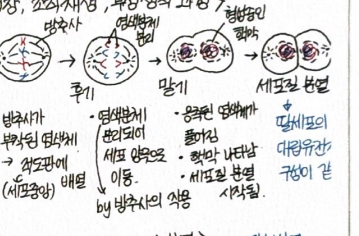 방추사
염색분체
분리
형성중인
핵막
후기
말기
세포질 분열
방추사가
부착된 염색체
→ 적도판에
(세포중앙) 배열
• 염색분체
분리되어
세포 양극으로
이동.
by 방추사의 작용
• 응축된 염색체가
풀어짐
• 핵막 나타남
• 세포질 분열
시작됨.
딸세포의
구성이 같